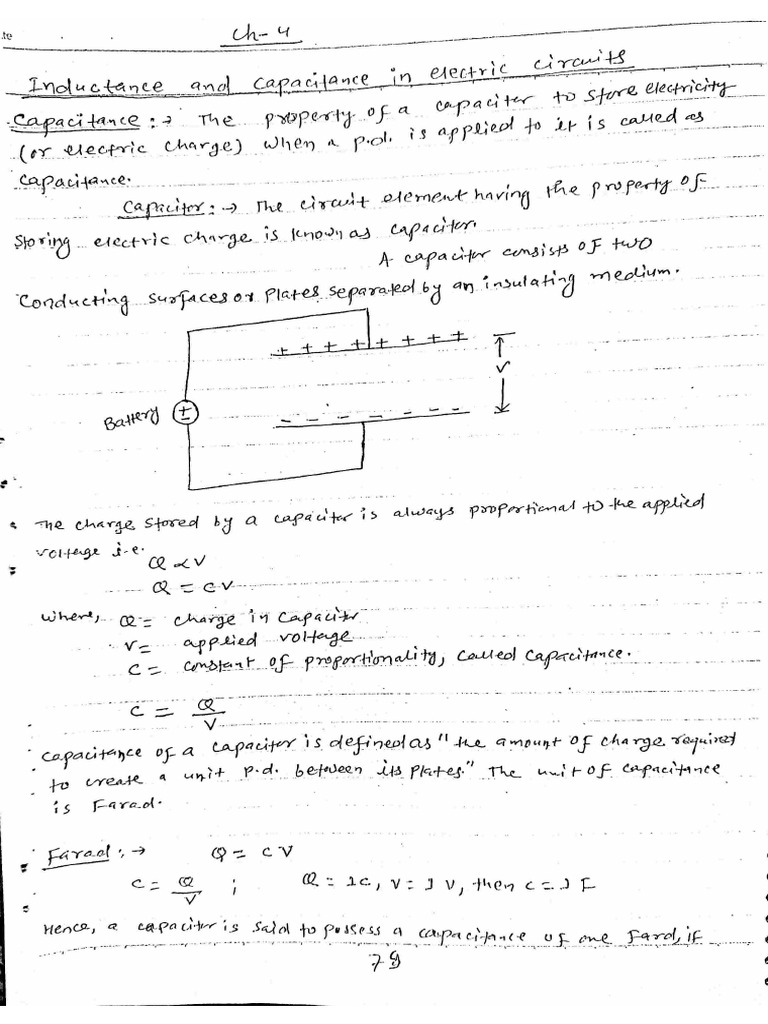 te
Ch-4
Inductance and Capacitance in electric circuits
Capacitance :→ The property of a capaciter to store electricity
(or electric charge) when a p.d. is applied to it is called as
capacitance.
Capacitor :→ The circuit element having the property of
storing electric charge is known as capacitor.
A capacitor consists of two
conducting surfaces or plates separated by an insulating medium.
+ + + + + + + +
V
Battery ±
- - - - - - -
The charge stored by a capacitor is always proportional to the applied
voltage i.e.
Q ∝ V
Q = CV
where, Q = charge in capacitor
V = applied voltage
C = constant of proportionality, called capacitance.
C = Q/V
capacitance of a capacitor is defined as "the amount of charge required
to create a unit p.d. between its plates." The unit of capacitance
is Farad.
Farad :→ Q = CV
C = Q/V ; Q = 1C, V = 1V, then C = 1 F
Hence, a capacitor is said to possess a capacitance of one fard, if
79